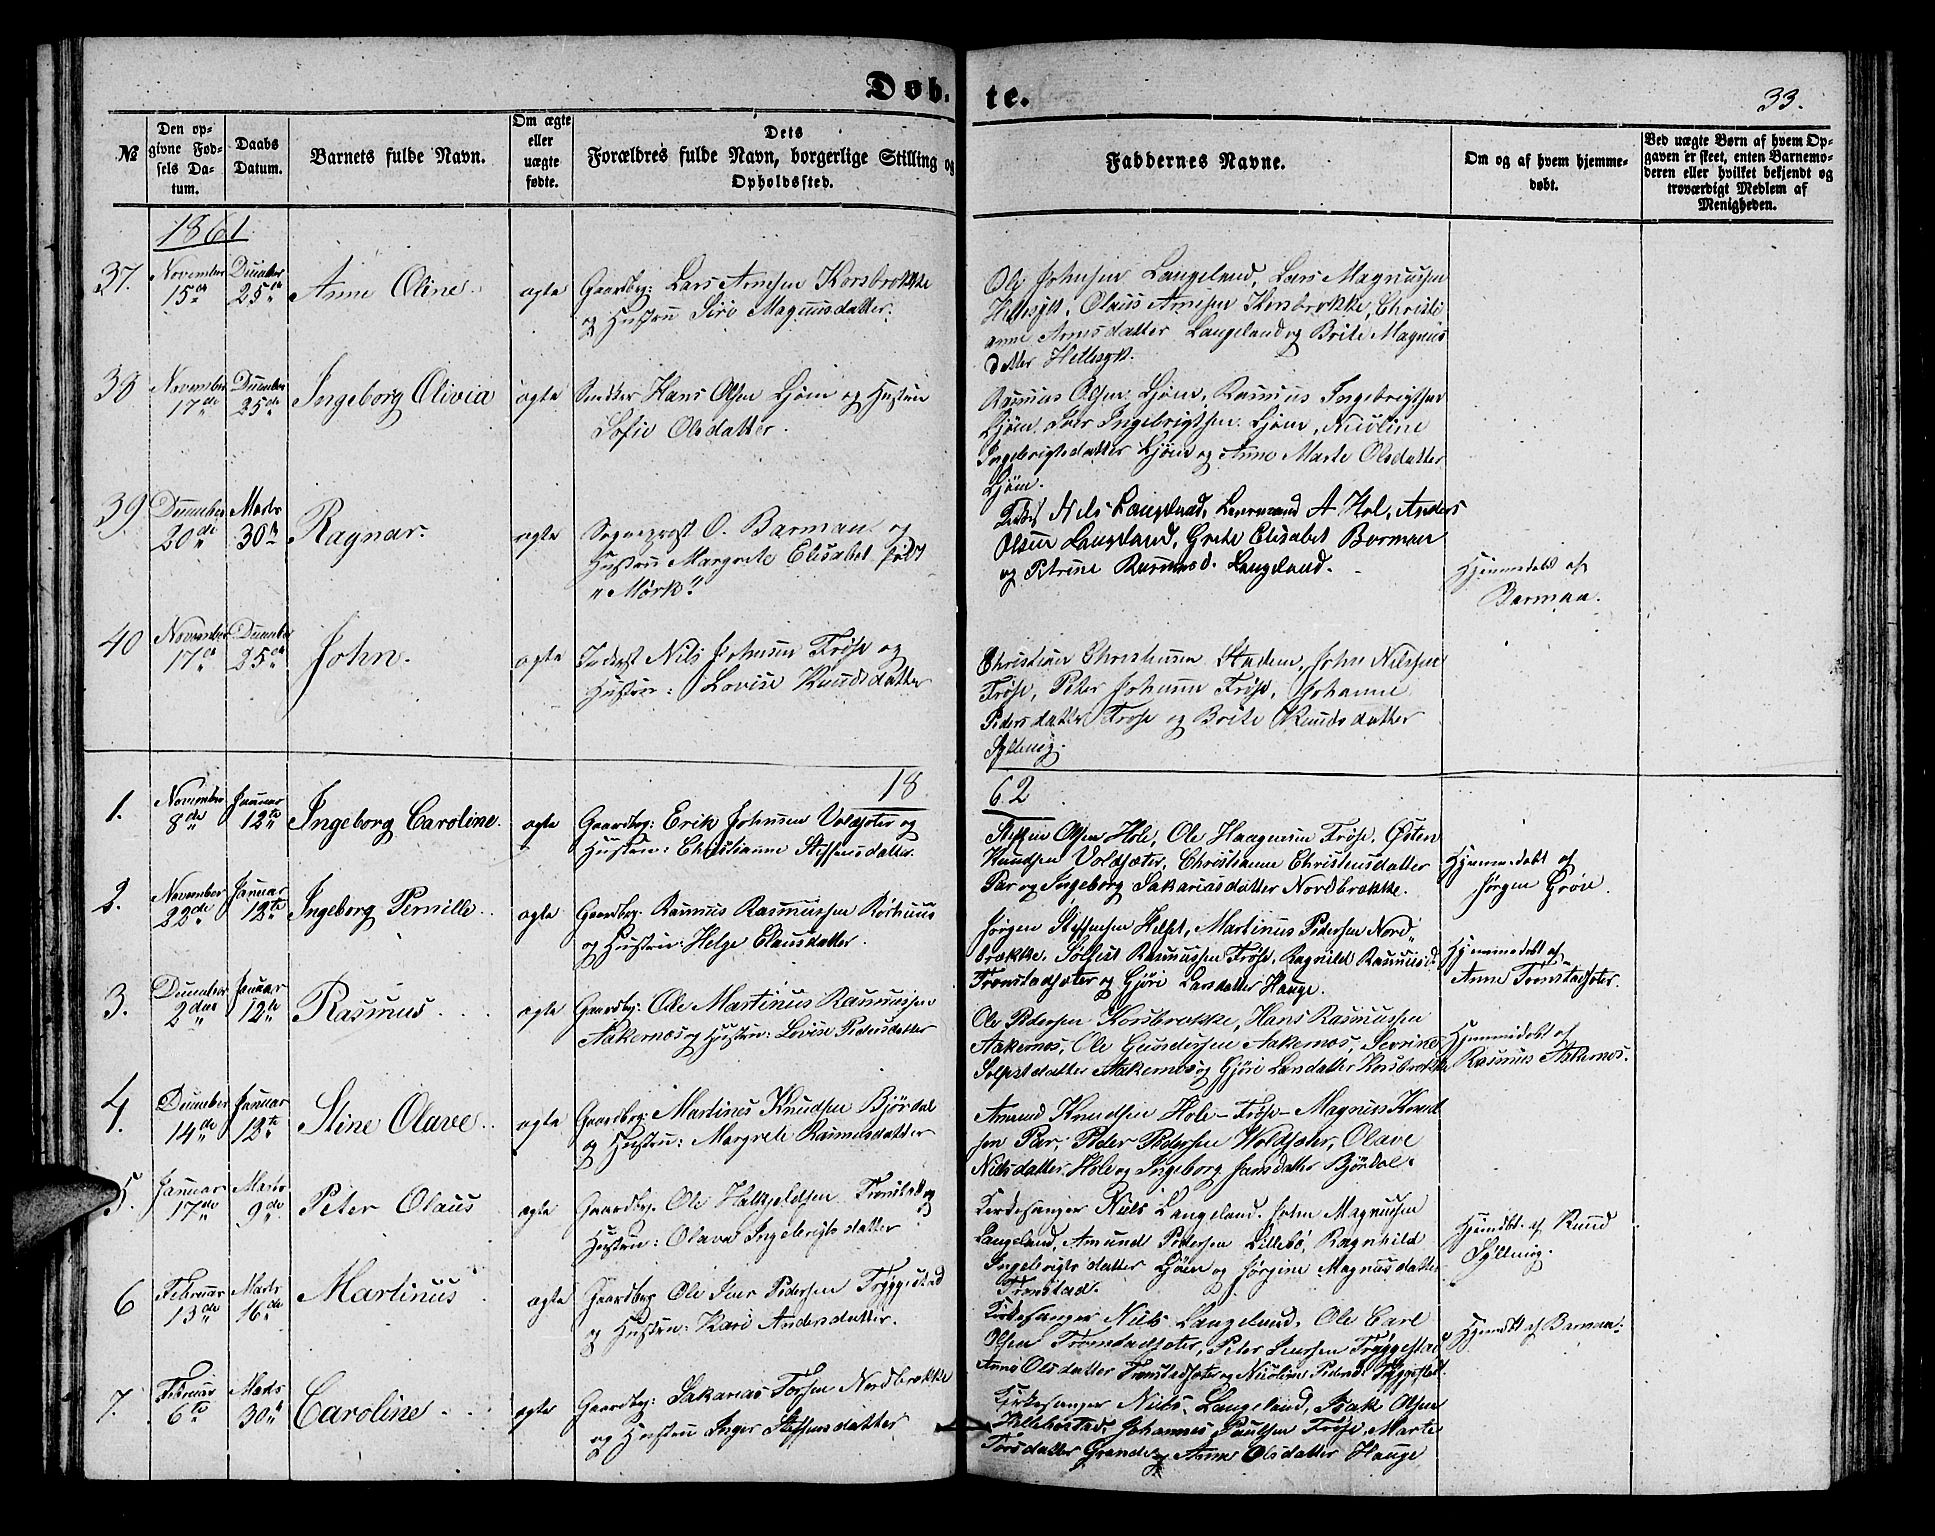 Døb-
te.
33.
№
Den op-
givne Fød-
sels Da-
tum.
Daabs
Datum.
Barnets fulde Navn.
Om ægte
eller
uægte
fødte.
Dets
Forældres fulde Navn, borgerlige Stilling og
Opholdssted.
Faddernes Navne.
Om og af hvem hjemme-
døbt.
Ved uægte Børn af hvem Op-
gaven er skeet, enten Barnemo-
deren eller hvilket bekjendt og
troværdigt Medlem af
Menigheden.
1861
37. November December
15de 25de Anne Oline. ægte
Gaardbr: Lars Arnesen Korsbrække
og Hustru Siri Magnusdatter.
Ole Johnsen Langeland, Lars Magnussen
Hellesylt, Olaus Arnesen Korsbrække, Christi
anne Arnesdatter Langeland og Brite Magnus
datter Hellesylt.
38 November December
17de 25de Ingeborg Olivia ægte
Hans Olsen Ljøen og Hustru
Sofie Olsdatter.
Rasmus Olsen Ljøen, Rasmus Ingebrigtsen
Ljøen, Iver Ingebrigtsen Ljøen, Nicoline
Ingebrigtsdatter Ljøen og Anne Marte Olsdatter
Ljøen.
39 December Marts
20de 30te Ragnar. ægte
Sogneprest O. Barman og
Hustru Margrete Elisabet født
"Mørk"
Nils Langeland, Lensmand A Hol, Anders
Olsen Langeland, Grete Elisabet Barman
og Petrine Rasmusd. Langeland.
Hjemmedøbt af
Barman.
40 November December
17de 25de John. ægte
Inderst Nils Johnsen Frøse og
Hustru: Lovise Knudsdatter
Christian Christensen Stadem, John Nilssen
Frøse, Peter Johnsen Frøse, Johanne
Pedersdatter Frøse og Brite Knudsdatter
Sylteng.
1862
1. November Januar
8de 12te Ingeborg Caroline. ægte
Gaardbr: Erik Johnsen Voldsæter og
Hustru: Christianne Steffensdatter.
Steffen Olsen Hole, Ole Haagensen Frøse, Østen
Knudsen Voldsæter, Christianne Christensdatter
Par og Ingeborg Sakariasdatter Nordbrække.
Hjemmedøbt af
Jørgen Grøse.
2. November Januar
22de 12te Ingeborg Pernille. ægte
Gaardbr: Rasmus Rasmussen Rørhuus
og Hustru: Helge Clausdatter.
Jørgen Steffensen Helset, Martinus Pedersen Nord
brække, Solfest Rasmussen Frøse, Ragnild Rasmusd.
Tronstadsæter og Gjøri Larsdatter Hauge.
Hjemmedøbt af
Anne Tronstadsæter.
3. December Januar
2den 12te Rasmus ægte
Gaardbr: Ole Martinus Rasmussen
Aakernæs og Hustru: Lovise Pedersdatter
Ole Pedersen Korsbrække, Hans Rasmussen
Aakernæs, Ole Gundersen Aakernæs, Severine
Solfestdatter Aakernæs og Gjøri Larsdatter Korsbrække
Hjemmedøbt af
Rasmus Aakernæs.
4. December Januar
14de 12te Stine Olave. ægte
Gaardbr: Martinus Knudsen Bjørdal
og Hustru: Margrete Rasmusdatter
Amund Knudsen Hole-Frøse- Magnus Knud
sen Par, Peder Pedersen Woldsæter, Olave
Nilsdatter Hole og Ingeborg Jansdatter Bjørdal.
5. Januar Marts
17de 9de Peter Olaus ægte
Gaardbr. Ole Halkjeldsen Tronstad og
Hustru: Olave Ingebrigtsdatter
Kirkesanger Niels Langeland, John Magnussen
Langeland, Amund Pedersen Lillebø, Ragnhild
Ingebrigtsdatter Ljøen og Jørgine Magnusdatter
Tronstad.
Hjemdbt. af Knud
Sylteng.
6 Februar Marts
13de 16de Martinus ægte
Gaardbr. Ole Iver Pedersen Tryggestad
og Hustru: Kari Andersdatter.
Kirkesanger Niels Langeland, Ole Carl
Olsen Tronstadsæter, Peter Tryggestad
Anne Olsdatter Tronstadsæter og Nicoline Pedersd. Tryggestad.
Hjemdbt af Barman.
7. Februar Marts
6te 30te Caroline. ægte
Gaardbr: Sakarias Torsen Nordbrække
og Hustru Inger Steffensdatter
Kirkesanger Niels Langeland, Isak Olsen
Hellebostad, Johannes Paulsen Frøse, Marte
Torsdatter Grande og Anne Olsdatter Hauge